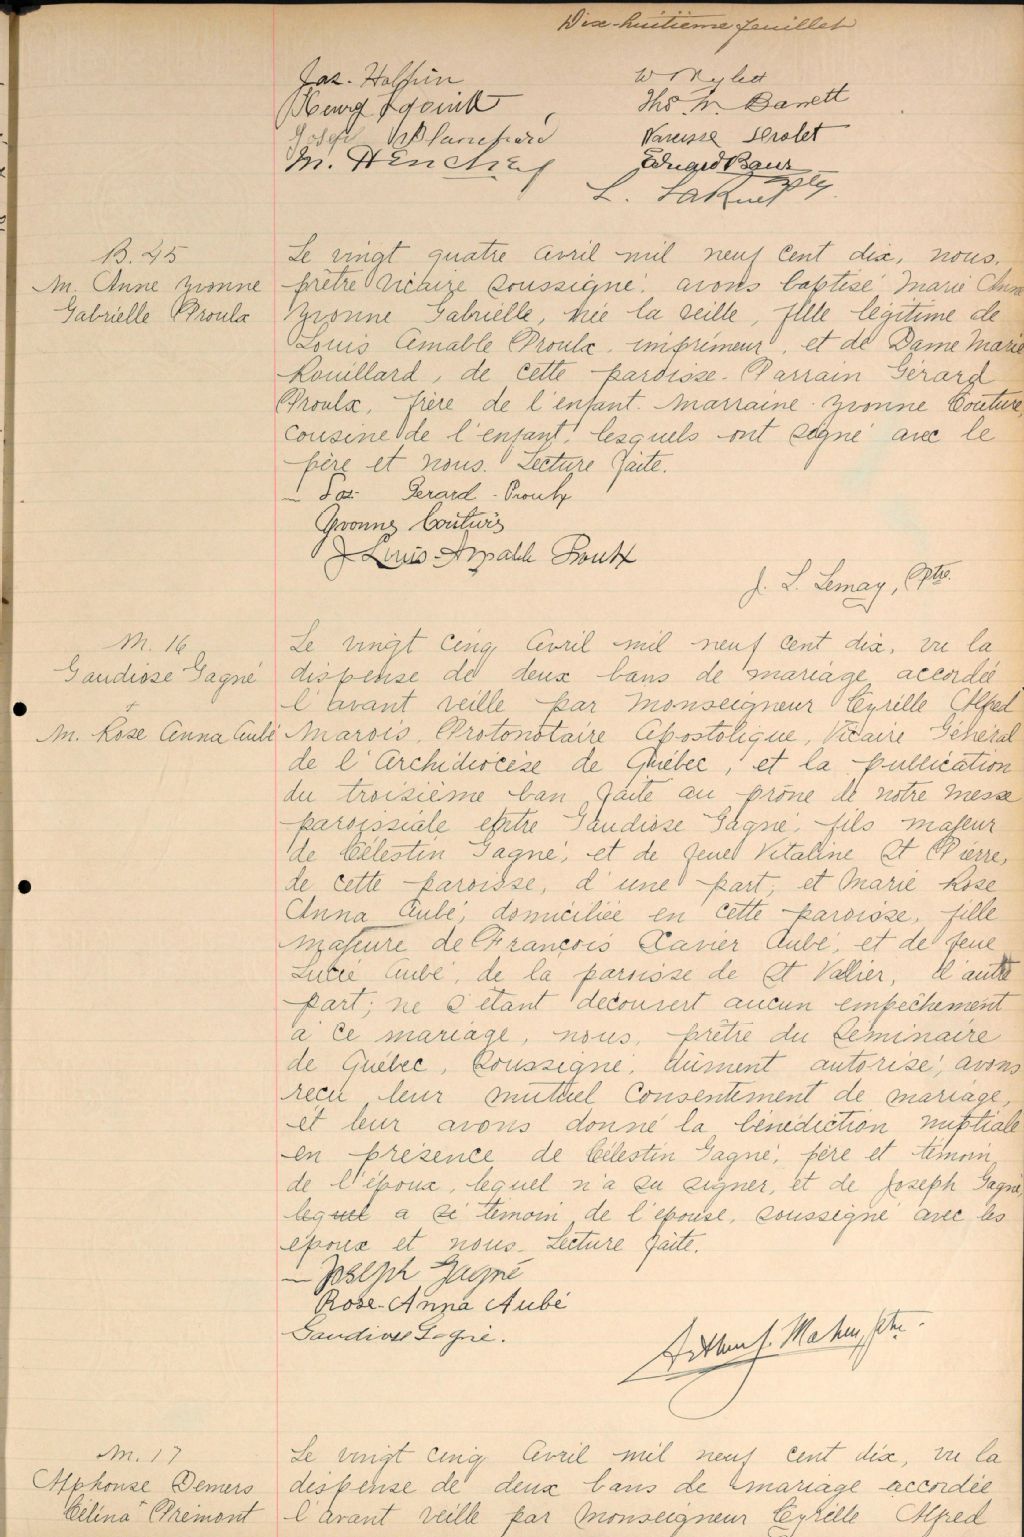 Dix-huitième feuillet
Jas. Halpin
Henry
Joseph Blanchard
M. Henchey
W
Thos. W. Barrett
Narcisse Drolet
Edward Baur
L.
B. 45
M. Anne Yvonne
Gabrielle Proulx
Le vingt quatre Avril mil neuf cent dix, nous,
prêtre vicaire soussigné, avons baptisé Marie Anne
Yvonne Gabrielle, née la veille, fille légitime de
Louis Amable Proulx, imprimeur, et de Dame Marie
Rouillard, de cette paroisse. Parrain Gérard
Proulx, frère de l'enfant. Marraine Yvonne Couture,
cousine de l'enfant, lesquels ont signé avec le
père et nous. Lecture faite.
Gerard Proulx
Yvonne Couture
J Louis-Amable Proulx
J. L. Lemay, Ptre.
M. 16
Gaudiose Gagné
+
M. Rose Anna Aubé
Le vingt cinq Avril mil neuf cent dix, vu la
dispense de deux bans de mariage accordée
l'avant veille par Monseigneur Cyrille Alfred
Marois, Protonotaire Apostolique, Vicaire Général
de l'Archidiocèse de Québec, et la publication
du troisième ban faite au prône de notre messe
paroissiale entre Gaudiose Gagné, fils majeur
de Célestin Gagné, et de feue Vitaline St Pierre,
de cette paroisse, d'une part; et Marie Rose
Anna Aubé, domiciliée en cette paroisse, fille
majeure de François Xavier Aubé, et de feue
Lucie Aubé, de la paroisse de St Vallier, d'autre
part; ne s'étant découvert aucun empêchement
à ce mariage, nous, prêtre du Séminaire
de Québec, soussigné, dûment autorisé, avons
reçu leur mutuel consentement de mariage,
et leur avons donné la bénédiction nuptiale
en présence de Célestin Gagné, père et témoin
de l'époux, lequel n'a su signer, et de Joseph Gagné,
lequel a si témoin de l'épouse, soussigné avec les
époux et nous. Lecture faite.
Joseph Gagné
Rose-Anna Aubé
Gaudiose Gagné.
Arthur Maheux, ptre.
M. 17
Alphonse Demers
Célina Prémont
Le vingt cinq Avril mil neuf cent dix, vu la
dispense de deux bans de mariage accordée
l'avant veille par Monseigneur Cyrille Alfred